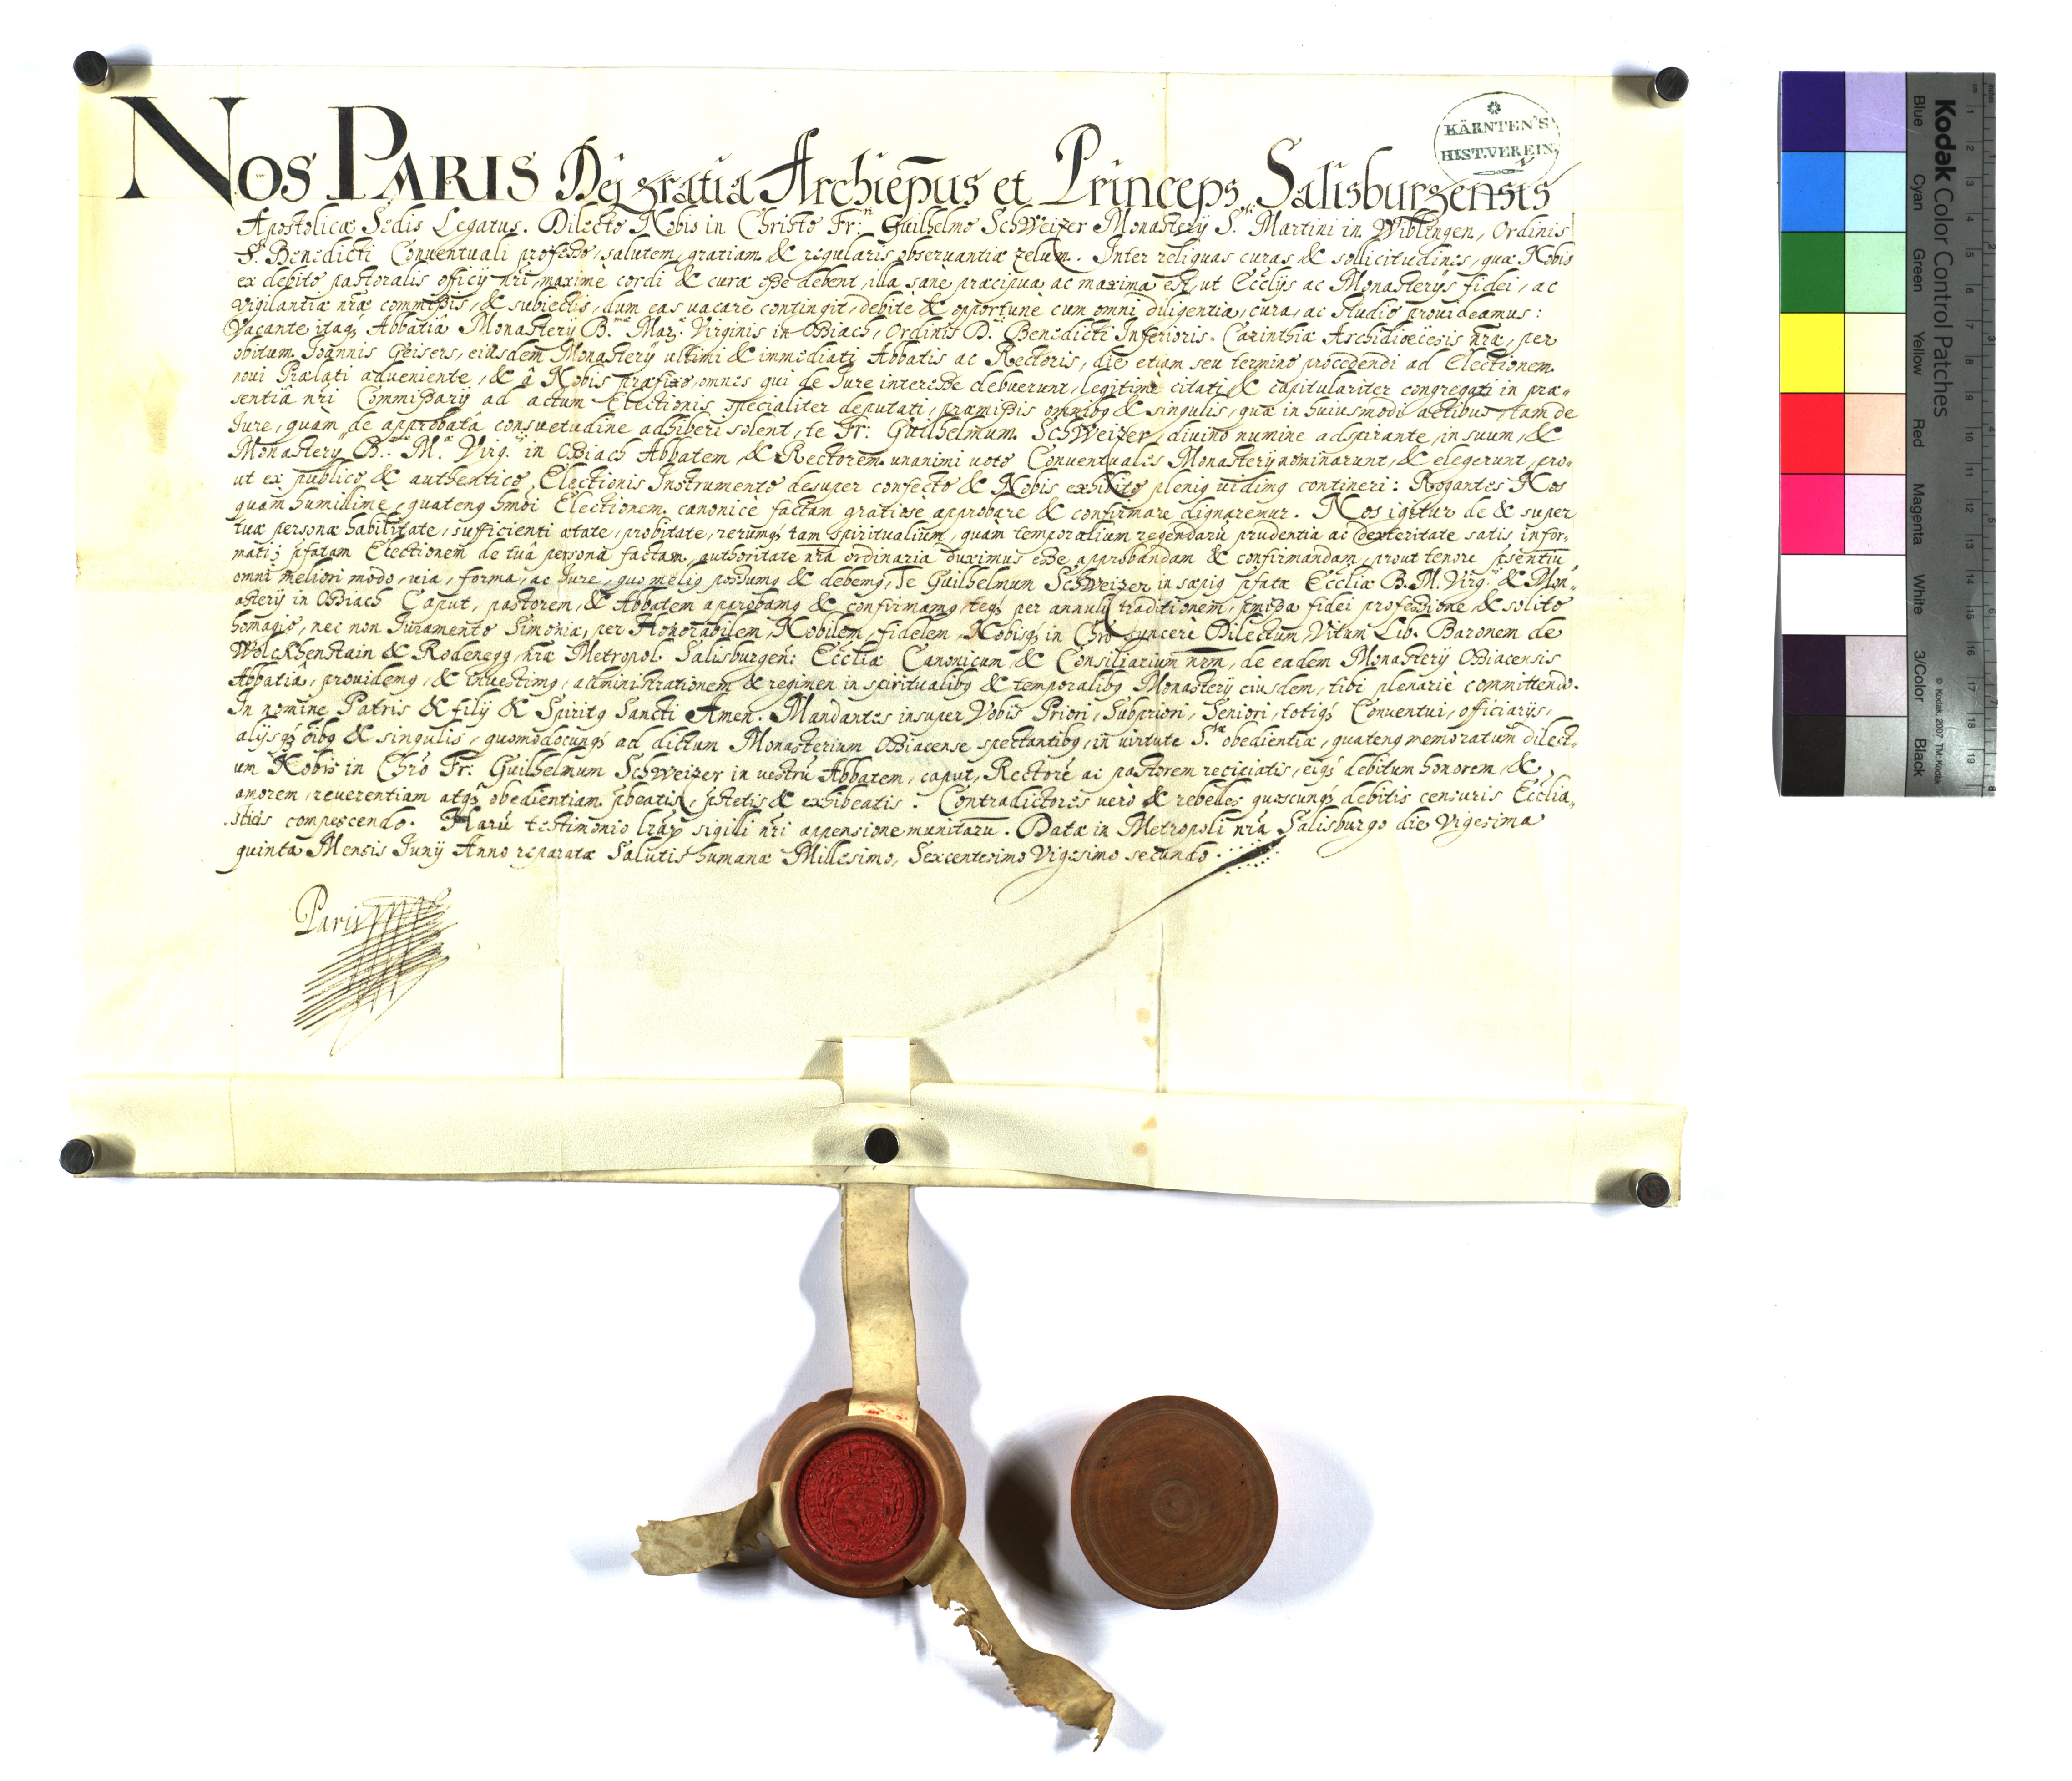 NOS PARIS Dej gratia Archiep̄us et Princeps Salisburgensis
KÄRNTEN'S
HIST. VEREIN
Apostolicæ Sedis Legatus. Dilecto Nobis in Christo Frī: Guilhelmo Schweizer Monasterÿ S.ti Martini in Wiblingen, Ordinis
S.ti Benedicti Conventuali professo, salutem, gratiam & regularis observantiæ zelum. Inter reliquas curas & sollicitudines, quæ Nobis
ex debito pastoralis officÿ nr̄i, maximè cordi & curæ esse debent, illa sanè præcipua ac maxima est, ut Eccl̄ÿs ac Monasterÿs fidei, ac
vigilantiæ nr̄æ commissis, & subiectis, dum eas vacare contingit, debitè & opportunè cum omni diligentia, cura, ac studio prouideamus:
Vacante itaq; Abbatia Monasterÿ B.mæ Mar. Virginis in Ossiach, Ordinis D. Benedicti Inferioris Carinthiæ Archidioecesis nr̄æ, per
obitum Joannis Geisers, eiusdem Monasterÿ ultimi & immediati Abbatis ac Rectoris, die etiam seu termino procedendi ad Electionem
noui Prælati adueniente, & â Nobis præfixo, omnes qui de Jure interesse debuerunt, legitimè citati & capitulariter congregati in præ-
sentiâ nr̄i Commissarÿ ad actum Electionis specialiter deputati, præmissis omnibq & singulis, quæ in huiusmodi actibus, tam de
Jure, quàm de approbatâ consuetudine adhiberi solent, te Fr: Guilhelmum Schweizer, diuino numine adspirante, in suum, &
Monasterÿ B.æ M.æ Virg. in Ossiach Abbatem & Rectorem unanimi uoto Conventuales Monasterÿ nominarunt, & elegerunt, pro-
ut ex publico & authentico Electionis Instrumento desuper confecto & Nobis exhibito pleniq uidimq contineri: Rogantes Nos
quàm humillime, quatenq hm̄oi Electionem canonice factam gratiose approbare & confirmare dignaremur. Nos igitur de & super
tuæ personæ habilitate, sufficienti ætate, probitate, rerumq; tam spiritualium, quàm temporalium regendarū prudentia ac dexteritate satis infor-
mati; p̄fatam Electionem de tuâ personâ factam, authoritate nr̄a ordinaria duximus esse approbandam & confirmandam, prout tenore p̄sentiū,
omni meliori modo, uia, forma, ac Jure, quo meliq possumq & debemq, Te Guilhelmum Schweizer in sæpiq p̄fatæ Eccl̄iæ B. M. Virg. & Mon-
asterÿ in Ossiach Caput, pastorem, & Abbatem approbamq & confirmamq, teq; per annuli traditionem, p̄missa fidei professione & solito
homagio, nec non Juramento Simoniæ, per Honorabilem, Nobilem, fidelem, Nobisq; in Chr̄o syncerè Dilectum Vitum Lib. Baronem de
Wolckhenstain & Rodenegg, nr̄æ Metropol. Salisburgen: Eccl̄iæ Canonicum & Consiliarium nr̄m, de eadem Monasterÿ Ossiacensis
Abbatiâ, prouidemq, & inuestimq, administrationem & regimen in spiritualibq & temporalibq Monasterÿ eiusdem, tibi plenariè committendo.
In nomine Patris & filÿ & Spiritq Sancti Amen. Mandantes insuper Vobis Priori, Subpriori, Seniori, totiq; Conventui, officiarÿs,
alÿsq; oībq & singulis, quomodocunq; ad dictum Monasterium Ossiacense spectantibq, in uirtute S.tæ obedientiæ, quatenq memoratum dilect-
um Nobis in Chr̄o Fr: Guilhelmum Schweizer in uestrū Abbatem, caput, Rectorē ac pastorem recipiatis, eiq; debitum honorem, &
amorem, reuerentiam atq; obedientiam p̄beatis, p̄stetis & exhibeatis. Contradictores verò & rebelles quoscunq; debitis censuris Eccl̄ia-
sticis compescendo. Harū testimonio lr̄arum sigilli nr̄i appensione munitarū. Datæ in Metropoli nr̄a Salisburgo die Vigesima
quinta Mensis Junÿ Anno reparatæ Salutis humanæ Millesimo, Sexcentesimo Vigesimo secundo.
Paris
Kodak Color Control Patches
© Kodak, 2007 TM: Kodak
Blue Cyan Green Yellow Red Magenta White 3/Color Black